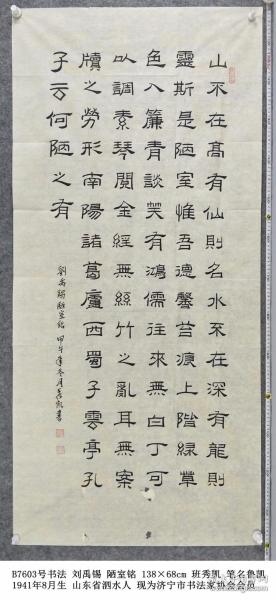 山不在高有仙則名水不在深有龍則
靈斯是陋室惟吾德馨苔痕上階綠草
色入簾青談笑有鴻儒往來無白丁可
以調素琴閱金經無絲竹之亂耳無案
牘之勞形南陽諸葛廬西蜀子雲亭孔
子云何陋之有
劉禹錫陋室銘 甲午年冬月魯凱書
B7603号书法 刘禹锡 陋室铭 138×68cm 班秀凯 笔名鲁凯
1941年8月生 山东省泗水人 现为济宁市书法家协会会员